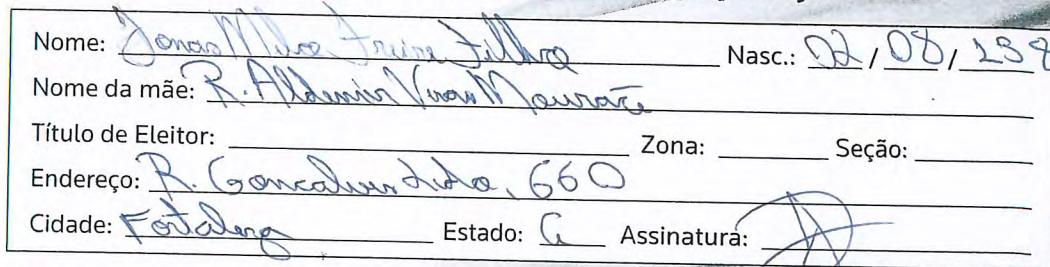 Nome: Jonas Freire Filho Nasc.: 02/08/198
Nome da mãe: R. Aldemir Mourão
Título de Eleitor: Zona: Seção:
Endereço: R. Goncalves Ledo, 660
Cidade: Fortaleza Estado: Ce Assinatura: